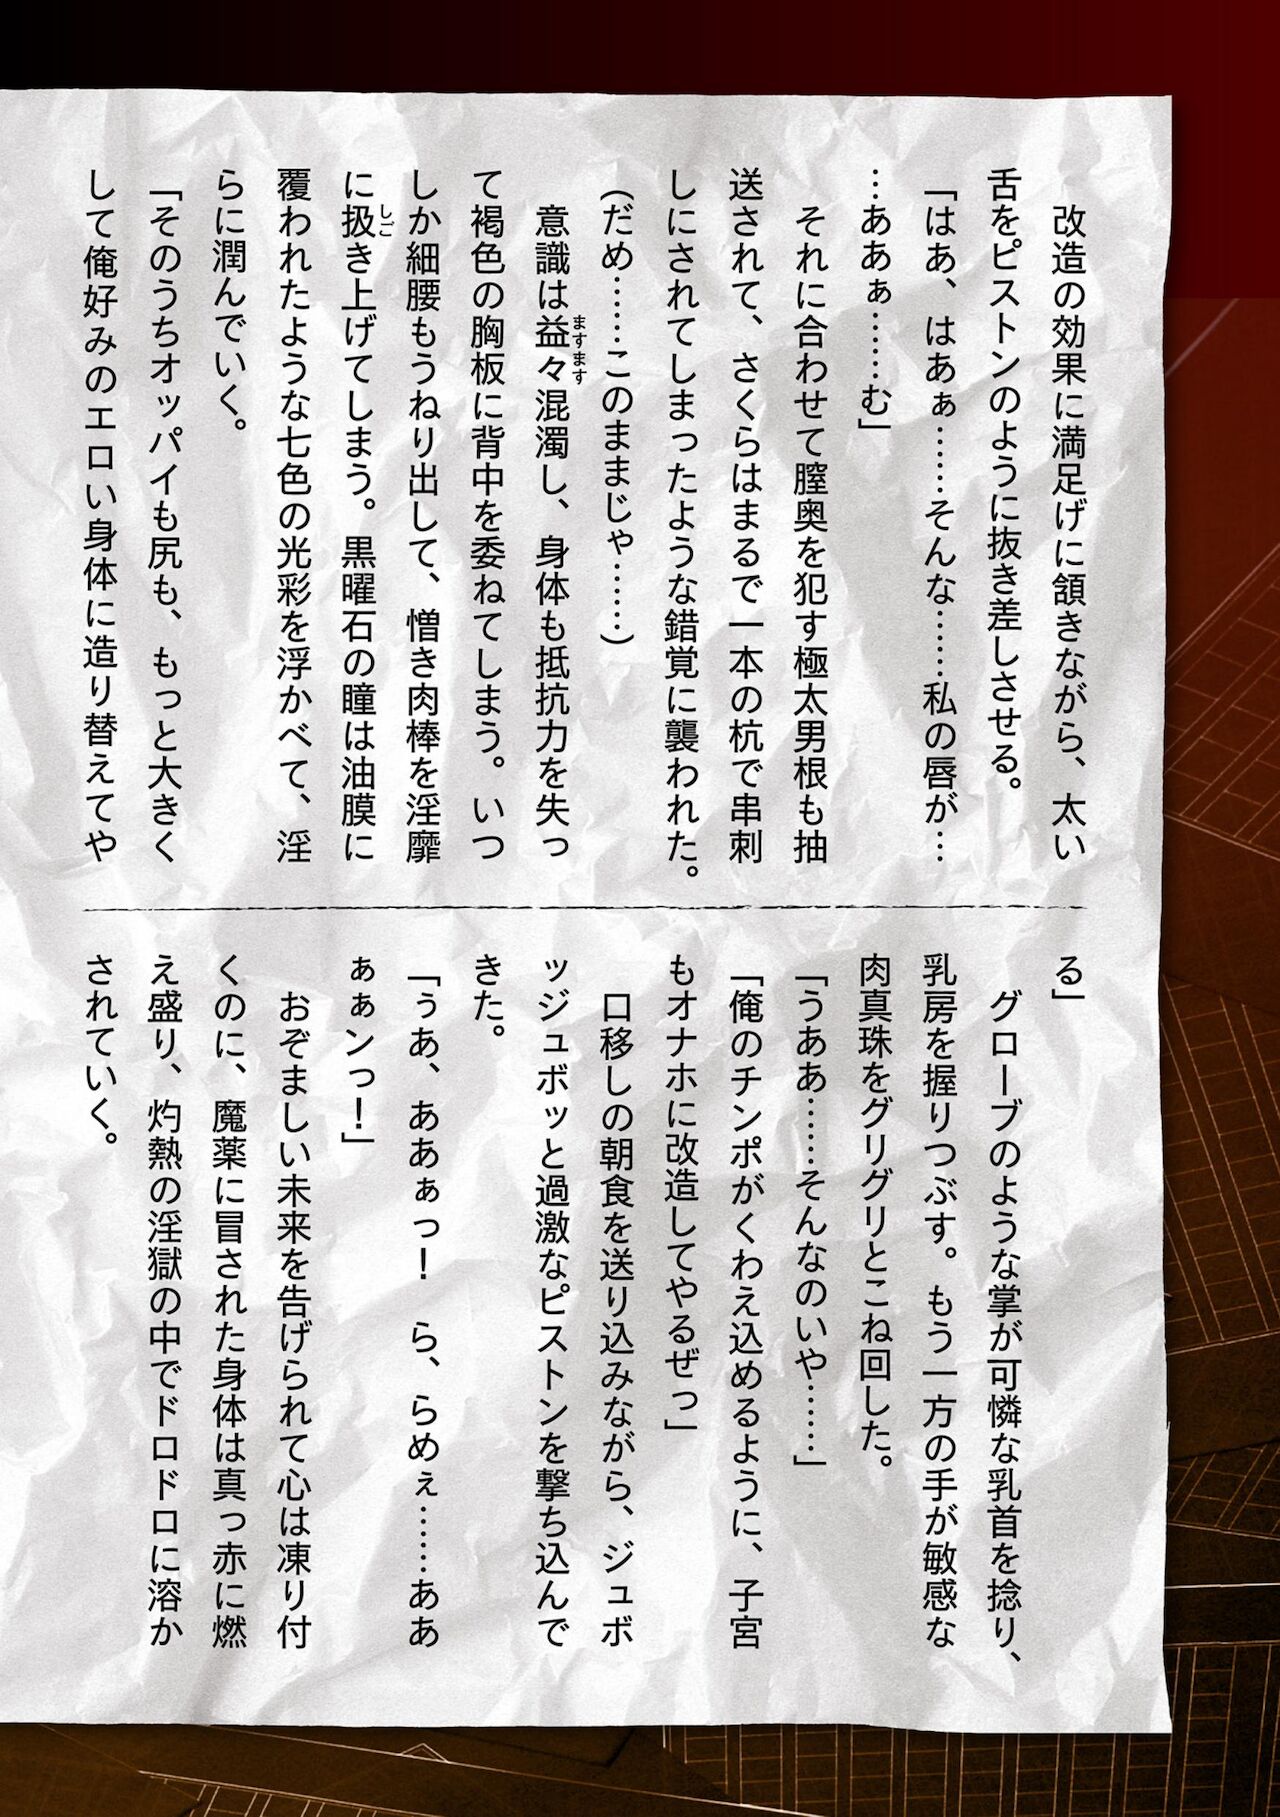 改造の効果に満足げに頷きながら、太い
舌をピストンのように抜き差しさせる。
「はあ、はあぁ……そんな……私の唇が…
…ああぁ……む」
それに合わせて膣奥を犯す極太男根も抽
送されて、さくらはまるで一本の杭で串刺
しにされてしまったような錯覚に襲われた。
(だめ……このままじゃ……)
意識は益々混濁し、身体も抵抗力を失っ
ますます
て褐色の胸板に背中を委ねてしまう。いつ
しか細腰もうねり出して、憎き肉棒を淫靡
に扱き上げてしまう。黒曜石の瞳は油膜に
しご
覆われたような七色の光彩を浮かべて、淫
らに潤んでいく。
「そのうちオッパイも尻も、もっと大きく
して俺好みのエロい身体に造り替えてや
る」
グローブのような掌が可憐な乳首を捻り、
乳房を握りつぶす。もう一方の手が敏感な
肉真珠をグリグリとこね回した。
「うああ……そんなのいや……」
「俺のチンポがくわえ込めるように、子宮
もオナホに改造してやるぜっ」
口移しの朝食を送り込みながら、ジュボ
ッジュボッと過激なピストンを撃ち込んで
きた。
「ぅあ、ああぁっ！　ら、らめぇ……ああ
ぁぁンっ！」
おぞましい未来を告げられて心は凍り付
くのに、魔薬に冒された身体は真っ赤に燃
え盛り、灼熱の淫獄の中でドロドロに溶か
されていく。